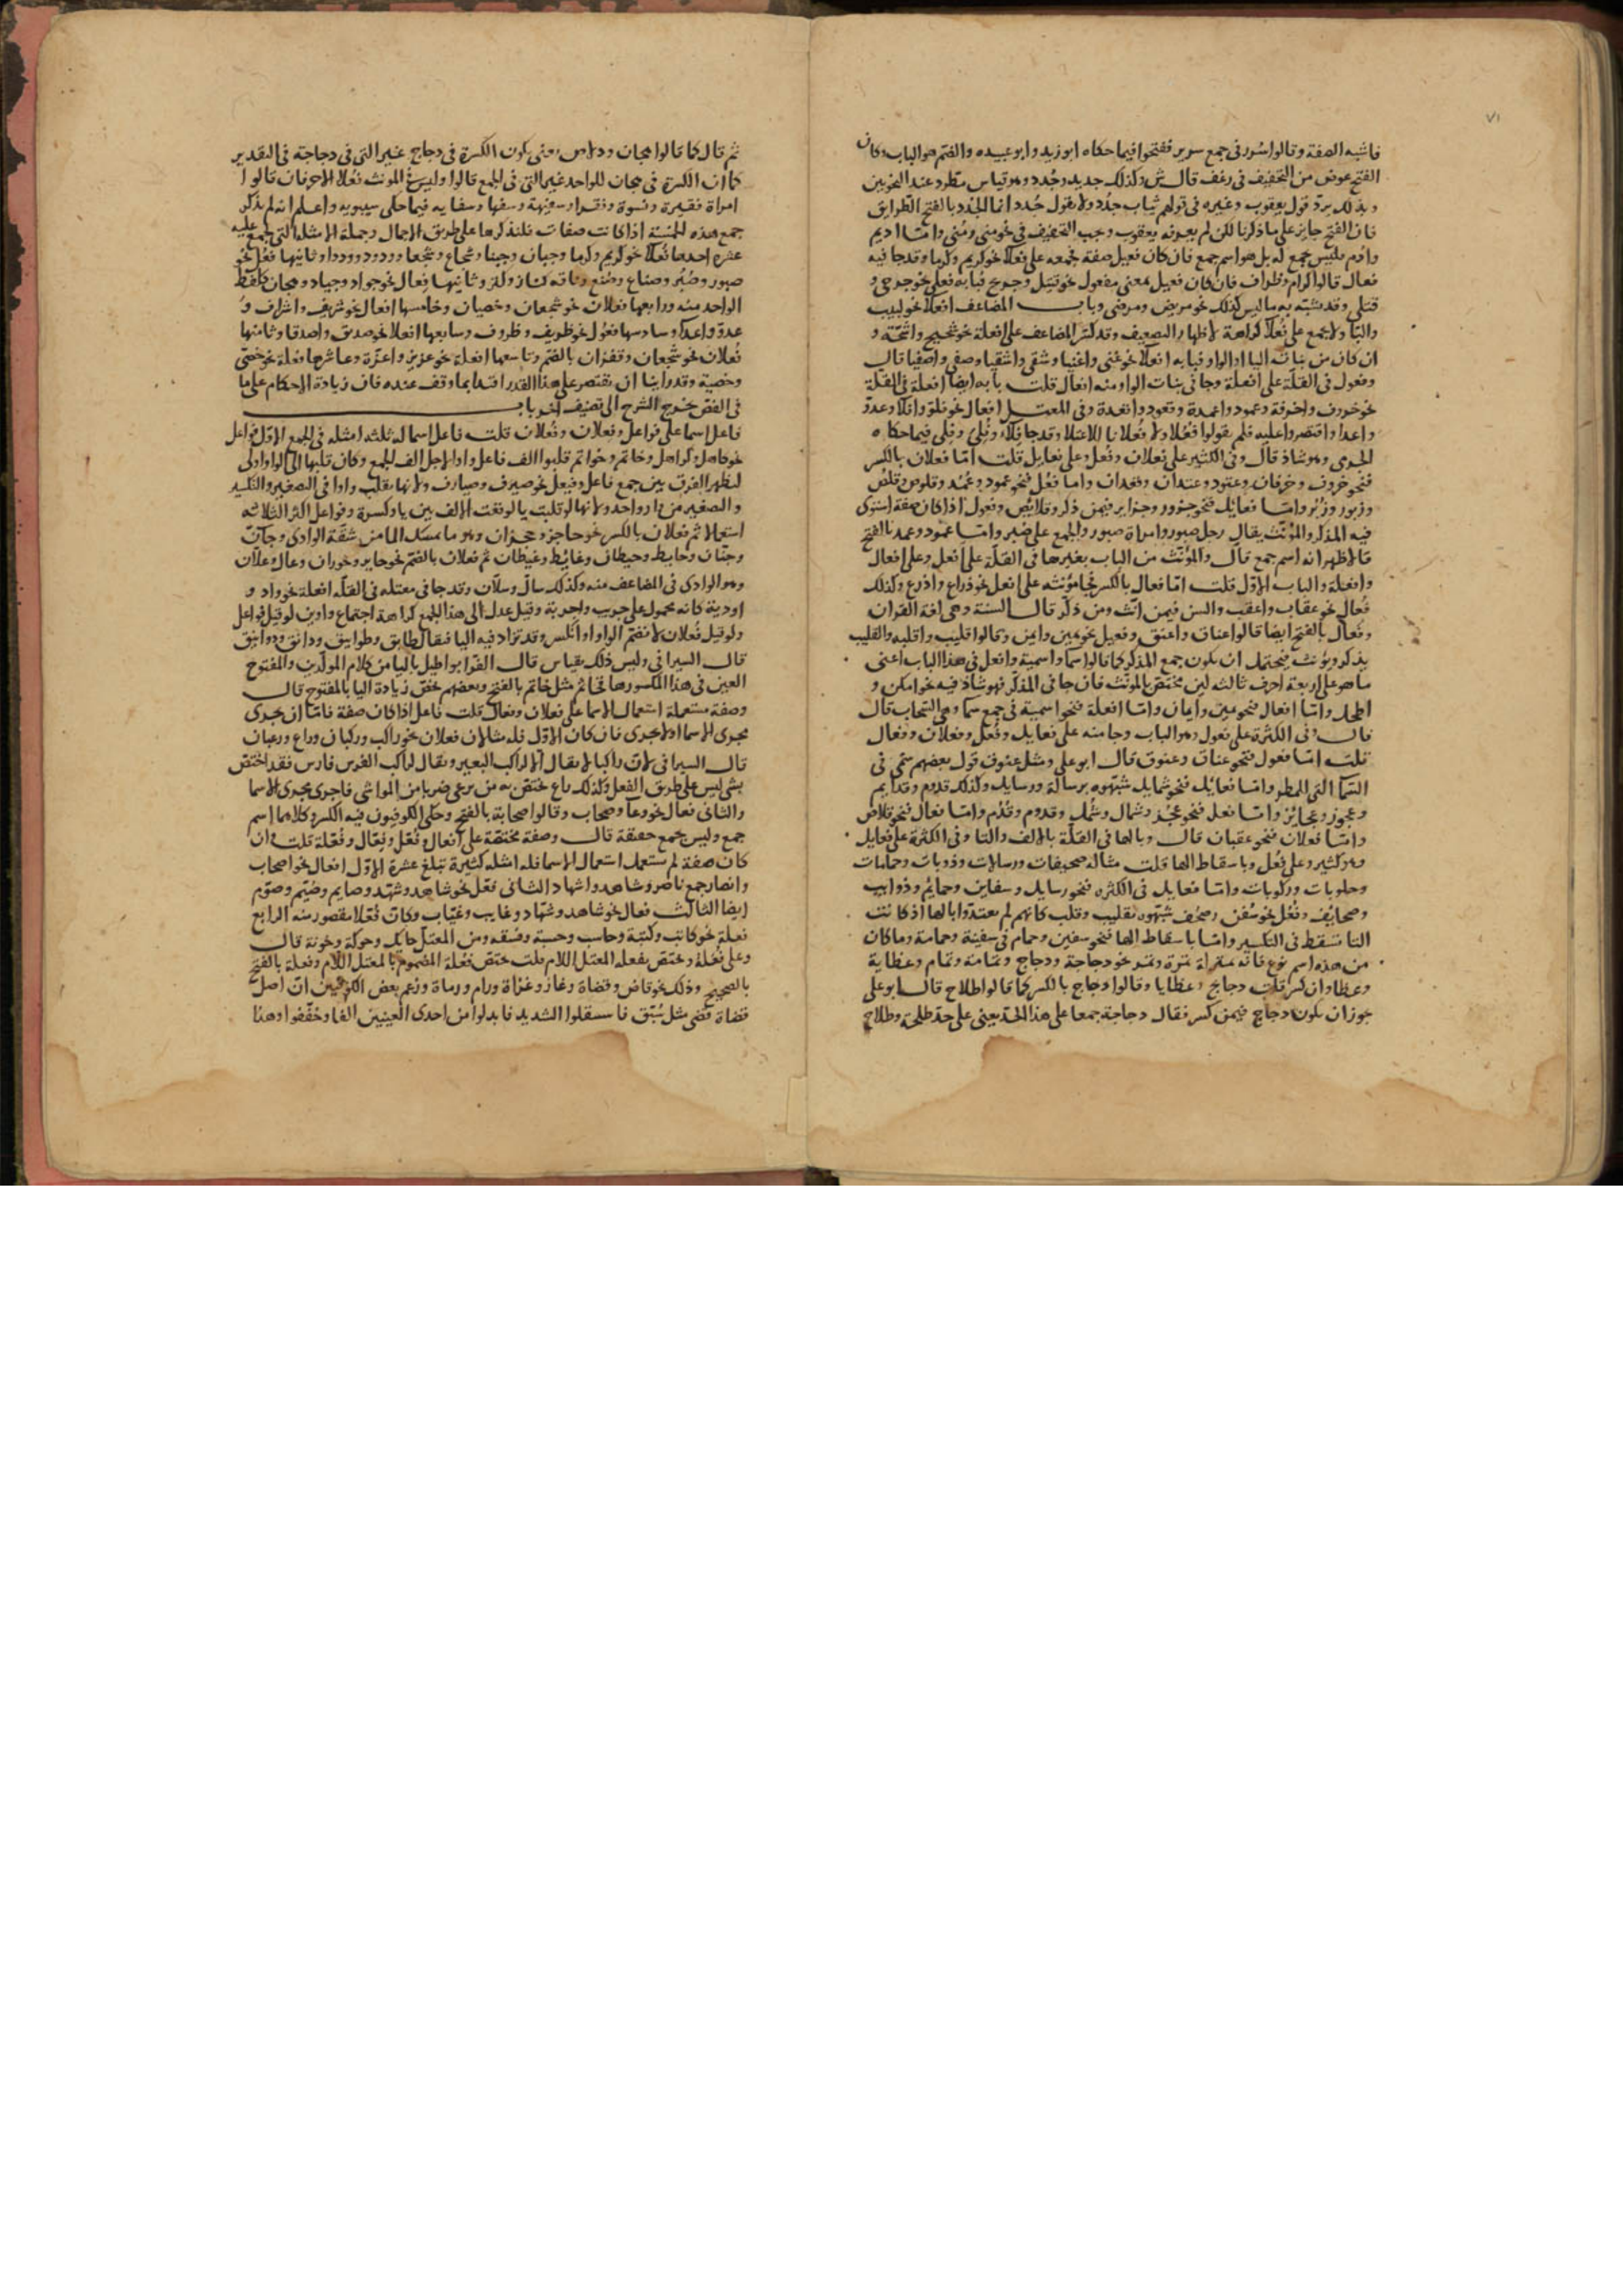 ٧١
فاشبه الصفة وقالوا سُرر في جمع سرير ففتحوا فيما حكاه ابو زيد وابو عبيده والضم هو الباب وكان
الفتح عوض من التخفيف في رغف قال ش وكذلك جديد وجُدد وهو قياس مطرد عند النحويين
وبذلك يرد قول يعقوب وغيره في قولهم ثياب جدد ولا يقول جُدد انما الجُدد بالفتح الطرايق
فان الفتح جايز على ما ذكرنا لكن لم يعرفه يعقوب وجب في نحو مني ومُني وامّا اديم
وادم فليس بجمع له بل هو اسم جمع فان كان فعيل صفة فجمعه على فعلا نحو كريم وكرما وقد جا فيه
فعال قالوا كرام وظراف فان كان فعيل بمعنى مفعول نحو قتيل وجريح فبابه فعلى نحو جرحى و
قتلى وقد شبّه به ما ليس كذلك نحو مريض ومرضى وباب المضاعف افعلا نحو لبيب
والبّا ولا يجمع على فُعلا كراهة لاظهار التضعيف وقد كسّر المضاعف على افعلة نحو شحيح واشحّة و
ان كان من بنات اليا او الواو فبابه افعلا نحو غني واغنيا وشقي واشقيا وصفي واصفيا قال
وفعول في القلة على افعلة وجا في بنات الواو منه افعال قلت بابه ايضا افعلة في القلة
نحو خروف واخرفة وعمود واعمدة وقعود واقعدة وفي المعتل افعال نحو فلوّ وافلا وعدوّ
واعدا واقتصروا عليه فلم يقولوا فُعُلا ولا فُعلانا للاعتلال وقد جا فلاء وفُلي وفِلي فيما حكاه
الجرمي وهو شاذ قال وفي الكثير على فعلان وفُعُل وعلى فعايل قلت امّا فعلان بالكسر
فنحو خروف وخرفان وعتود وعتدان وقعدان واما فُعُل فنحو عمود وعُمُد وقلوص وقلُص
وزبور وزُبُر وامّا فعائل فنحو جزور وجزاير فيمن ذكر وقلائص وفعول اذا كان صفة استوى
فيه المذكر والمؤنّث يقال رجل صبور وامراة صبور والجمع على صُبُر وامّا عمود وعمد بالفتح
فالاظهر انه اسم جمع قال والمؤنّث من الباب بغير ها في القلّة على افعل وعلى افعال
وافعلة والباب الاول قلت امّا فعال بالكسر فجا مؤنثه على افعل نحو ذراع واذرع وكذلك
فُعال نحو عقاب واعقب والسن فيمن انّث ومن ذكّر قال السنة وهي لغة القران
وفَعال بالفتح ايضا قالوا عناق واعنق وفعيل نحو يمين وايمن وقالوا قليب واقلبه والقليب
يذكر ويؤنث فيحتمل ان يكون جمع المذكر كما قالوا سما واسمية وافعل في هذا الباب اعني
ما هو على اربعة احرف ثالثه لين مختص بالمؤنّث فان جا في المذكر فهو شاذ فيه نحو امكن و
وامّا افعال فنحو يمين وايمان وامّا افعلة فنحو اسمية في جمع سما وهي السحاب قال
قال وفي الكثرة على فعول وهو الباب وجا منه على فعايل وفُعُل وفعلان وفعال
قلت امّا فعول فنحو عناق وعنوق قال ابو على ومثل عنوق قول بعضهم سُمي في
السّما التي المطر وامّا فعائل فنحو شمايل شبّهوه برسالة ورسايل وكذلك قدوم وقدايم
وعجوز وعجائز وامّا فعل فنحو عُجُز وشمال وشُمُل وقدوم وقُدُم وامّا فعال فنحو قلاص
وامّا فعلان فنحو عقبان قال وبالها في القلّة بالالف والتا وفي الكثرة على فعايل
وهو كثير وعلى فُعُل وباسقاط الها قلت مثاله صحيفات ورسالات وذوبات وحمامات
وحلوبات وركوبات وامّا فعايل في الكثره فنحو رسايل وسفاين وحمايم وذوايب
وصحايف وفُعُل نحو سُفُن وصُحُف شبّهوه بقليب وقلب كانهم لم يعتدّوا بالها اذ كانت
التا تسقط في التكسير وامّا باسقاط الها فنحو سفين وحمام في سفينة وحمامة وما كان
من هذه اسم نوع فانه بمنزلة تمرة وتمر نحو دجاجة ودجاج وثمامة وثمام وعظاية
وعظا وان كسر قلت دجايج وعظايا وقالوا دجاج بالكسر كما قالوا طلاح قال ابو على
يجوز ان يكون دجاج فيمن كسر فقال دجاجة جمعا على هذا الحد يعني على حد طلحة وطلاح
ثم قال كما قالوا هجان ودلاص يعني يكون الكسرة في دجاج غير التي في دجاجة في التقدير
كما ان الكسرة في هجان للواحد غير التي في الجمع قالوا وليس في المؤنث فُعلا الا حرفان قالوا
امراة فقيرة ونسوة وفقرا وسفيهة وسفها وسفايه فيما حكى سيبويه واعلم انه لم يذكر
جمع هذه الخمسة اذا كانت صفات فلنذكرها على طريق الاجمال وجملة الامثلة التي تجمع عليه
عشره احدها فُعلا نحو كريم وكرما وجبان وجبنا وشجاع وشجعا وودود ووددا وثانيها فُعُل نحو
صبور وصُبُر وصناع وصُنع وناقه كناز وكنز وثالثها فِعال نحو جواد وجياد وهجان كلفظ
الواحد منه ورابعها فعلان نحو شجعان وخصيان وخامسها افعال نحو شريف واشراف و
عدوّ واعدا وسادسها فعول نحو ظريف وظروف وسابعها افعلا نحو صديق واصدقا وثامنها
فُعلان نحو شجعان وقفزان بالضم وتاسعها افعلة نحو عزيز واعزّة وعاشرها فعلة نحو خصي
وخصية وقد راينا ان نقتصر على هذا القدر اقتدا بما وقف عنده فان زيادة الاحكام على ما
في الفص خروج الشرح الى تصنيف اخر باب
فاعل اسما على فواعل وفعلان وفُعلان قلت فاعل اسما له ثلثه امثله في الجمع الاول فواعل
نحو كاهل وكواهل وخاتم وخواتم قلبوا الف فاعل واوا لاجل الف الجمع وكان قلبها الى الواو اولى
ليظهر الفرق بين جمع فاعل وفيعل نحو صيرف وصيارف ولانها تقلب واوا في التصغير والتكسير
والتصغير من واد واحد ولانها لو قلبت يا لوقعت الالف بين يا وكسرة وفواعل اكثر الثلاثه
استعمالا ثم فعلان بالكسر نحو حاجز وحجزان وهو ما يمسك الما من شفة الوادي وجانّ
وجنّان وحايط وحيطان وغائط وغيطان ثم فعلان بالضم نحو حاير وحوران وعالّ وعلّان
وهو الوادي في المضاعف منه وكذلك سالّ وسلّان وقد جا في معتله في القلّه افعلة نحو واد و
اودية كانه محمول على جريب واجربة وقيل عدل الى هذا الجمع كراهة اجتماع واوين لو قيل فواعل
ولو قيل فُعلان لانضم الواو او وقد تزاد فيه اليا فيقال طابق وطوابيق ودانق ودوانيق
قال السيرافي وليس ذلك بقياس قال الفرّا بواطيل باليا من كلام المولّدين والمفتوح
العين في هذا كالمكسورها تحاتم مثل خاتم بالفتح وبعضهم خصّ زيادة اليا بالمفتوح قال
وصفة مستعملة استعمال الاسما على فعلان وفعال قلت فاعل اذا كان صفة فامّا ان يجرى
مجرى الاسما او لا يجرى فان كان الاوّل فله مثالان فعلان نحو راكب وركبان وراع ورعيان
قال السيرافي لان راكبا لا يقال الا لراكب البعير ويقال لراكب الفرس فارس فقد اختص
بشي ليس على طريق الفعل وكذلك راع مختص به من يرعى ضربا من المواشي فاجرى مجرى الاسما
والثاني فعال نحو رعا وصحاب وقالوا صحابة بالفتح وحكى الكوفيون فيه الكسر وكلاهما اسم
جمع وليس بجمع حقيقة قال وصفة مختصّة على افعال وفُعّل وفُعّال وفُعَلة قلت وان
كان صفة لم تستعمل استعمال الاسما فله امثلة كثيرة تبلغ عشرة الاوّل افعال نحو اصحاب
وانصار جمع ناصر وشاهد واشهاد الثاني فُعّل نحو شاهد وشُهّد وصايم وصُيّم وصوّم
ايضا الثالث فعال نحو شاهد وشهّاد وغايب وغيّاب وكان فُعّلا مقصور منه الرابع
فعلة نحو كاتب وكتبة وحاسب وحسبة وفسقه ومن المعتل حايك وحوكة وخونة قال
وعلى فُعلة ويختص بفعله المعتل اللام قلت يختص فُعلة المضموم بالمعتل اللام وفعلة بالفتح
بالصحيح وذلك نحو قاض وقضاة وغاز وغزاة ورام ورماة وزعم بعض الكوفيين ان اصل
قضاة قُضّى مثل سُبّق فاستثقلوا التشديد فابدلوا من احدى العينين الفا وخففوا وهذا